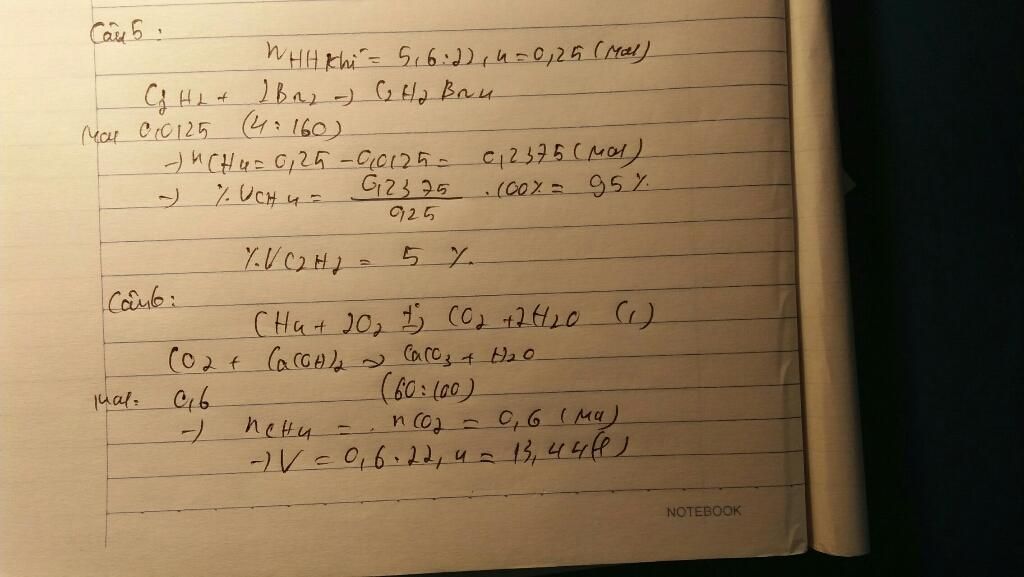 Câu 5 :
nHH khí = 5,6:22,4 = 0,25 (mol)
C2H2 + 2Br2 → C2H2Br4
Mol 0,0125 (4:160)
→ nCH4 = 0,25 - 0,0125 = 0,2375 (mol)
→ %VCH4 = 0,2375 / 0,25 . 100% = 95%
%VC2H2 = 5 %.
Câu 6 :
CH4 + 2O2 t°→ CO2 + 2H2O (1)
CO2 + Ca(OH)2 → CaCO3 + H2O
Mol: 0,6 (60:100)
→ nCH4 = nCO2 = 0,6 (mol)
→ V = 0,6.22,4 = 13,44 (l)
NOTEBOOK